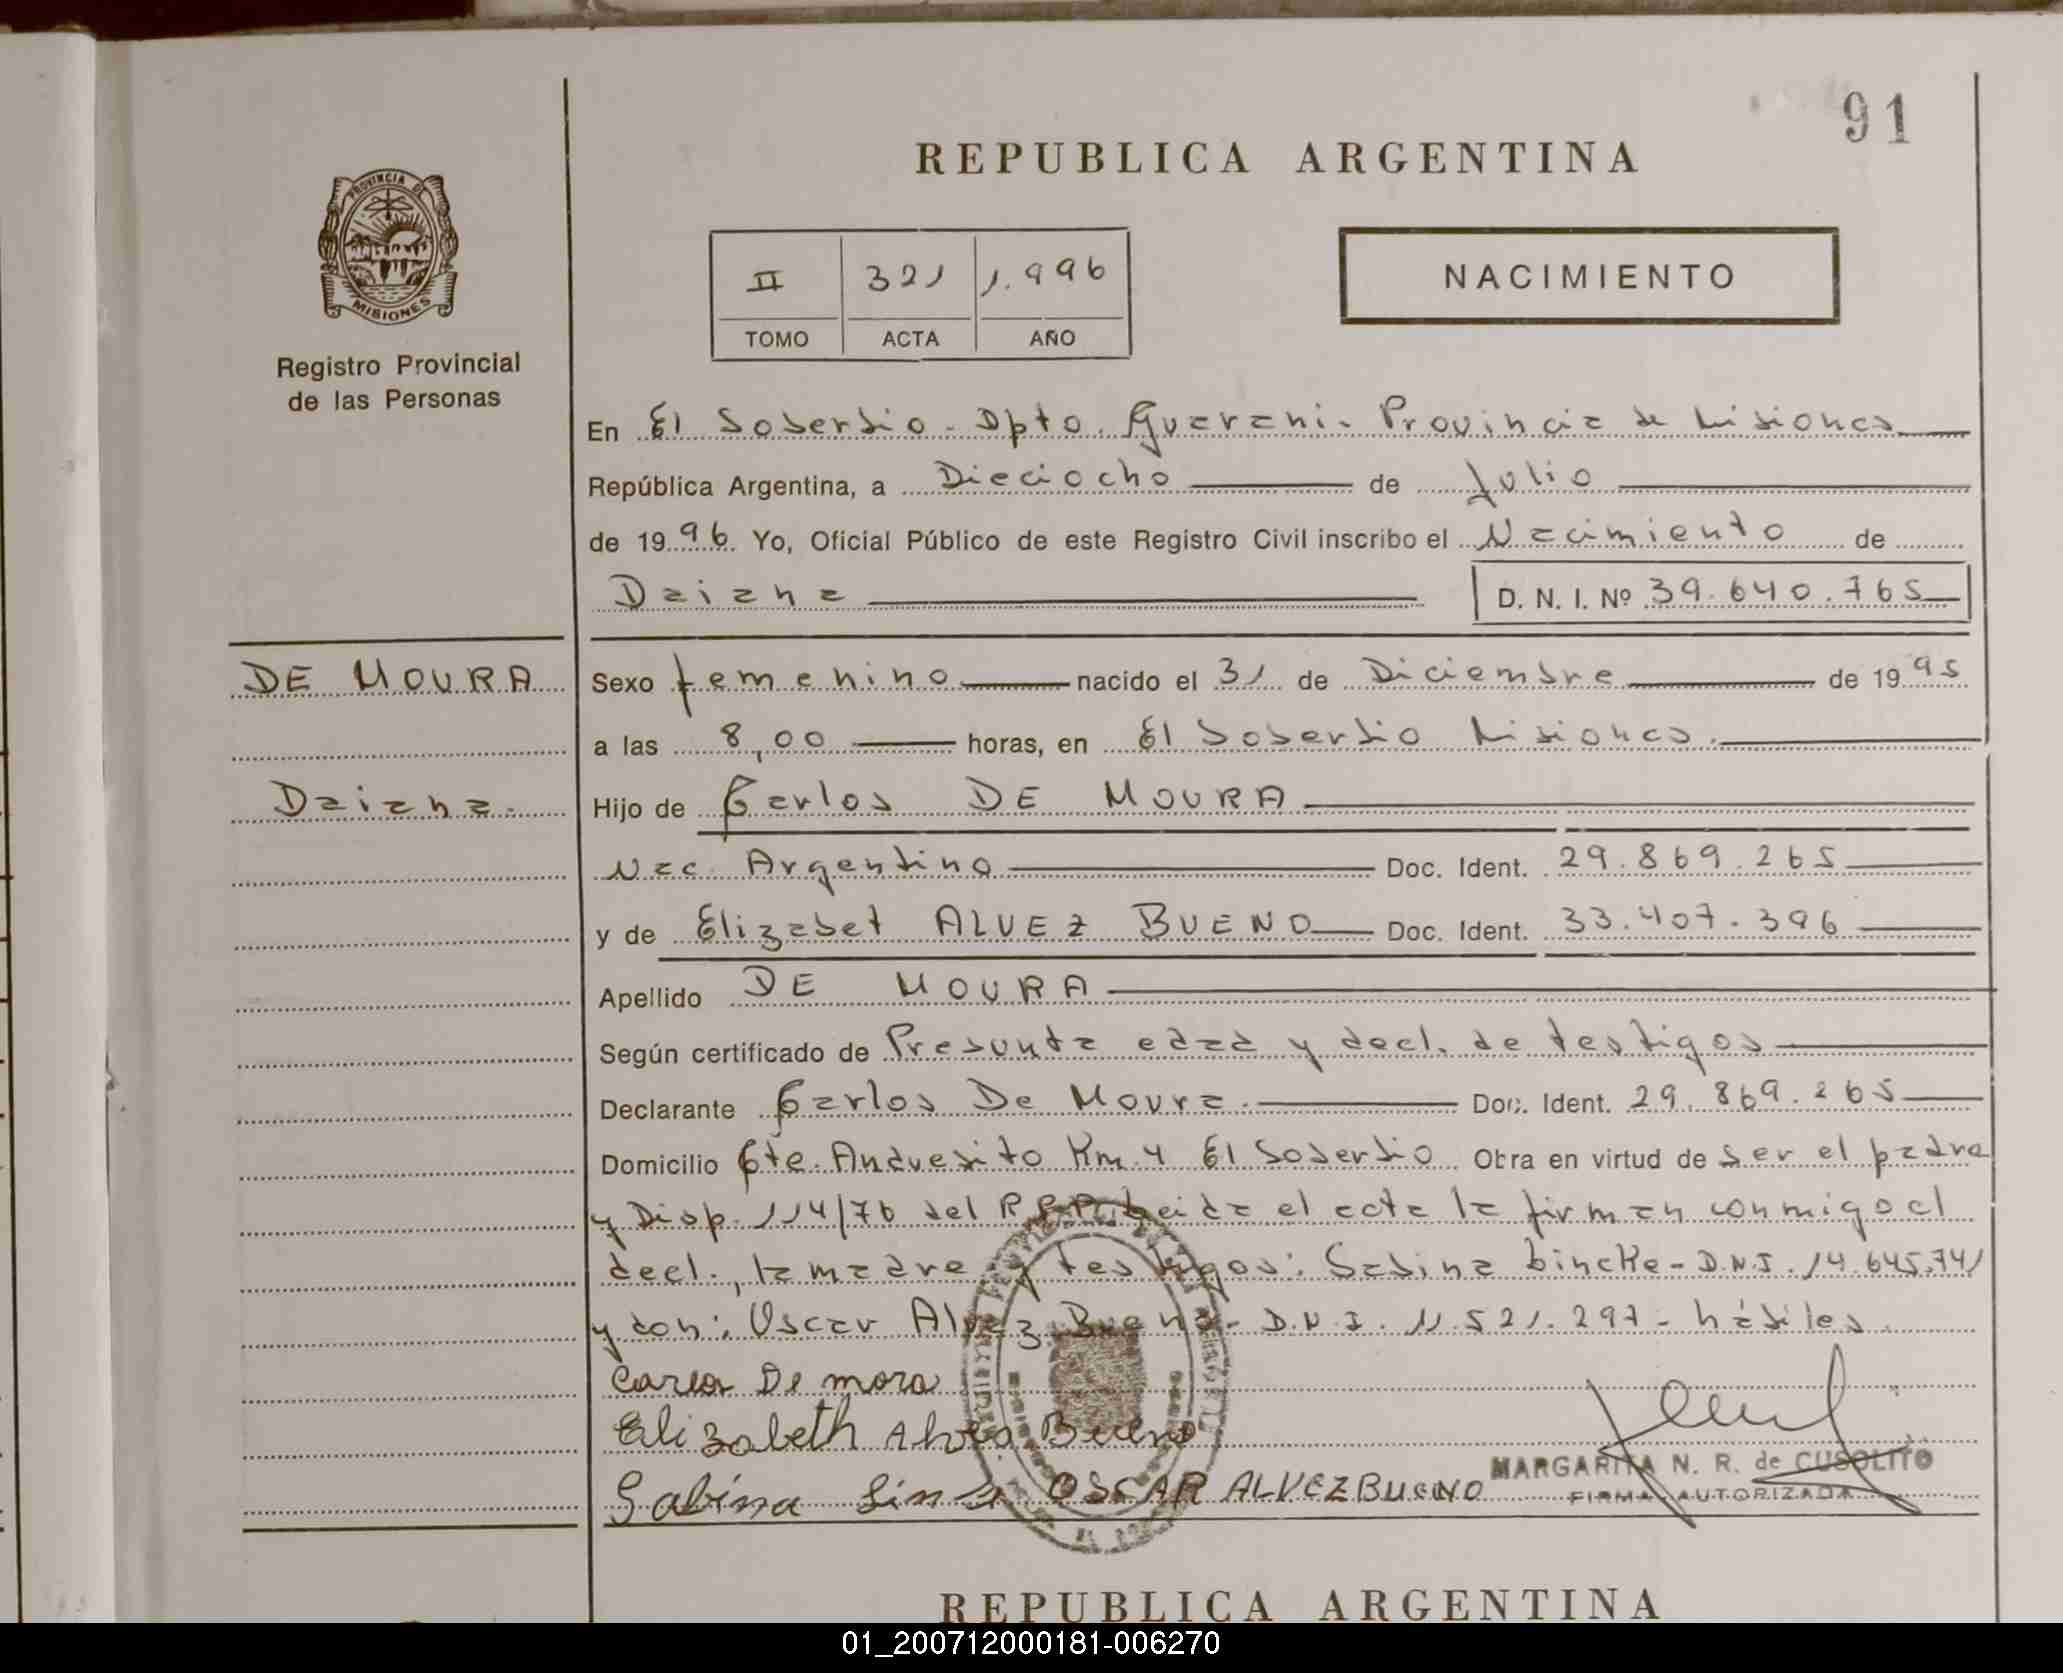 91
REPUBLICA ARGENTINA
PROVINCIA DE
MISIONES
Registro Provincial
de las Personas
II 321 1.996
TOMO ACTA AÑO
NACIMIENTO
En El Soberbio - Dpto. Guarani - Provincia de Misiones
República Argentina, a Dieciocho de Julio
de 1996. Yo, Oficial Público de este Registro Civil inscribo el Nacimiento de
Daiana D. N. I. Nº 39.640.765
DE MOURA
Daiana.
Sexo femenino nacido el 31 de Diciembre de 1995
a las 8,00 horas, en El Soberbio Misiones.
Hijo de Carlos DE MOURA
Nac. Argentino Doc. Ident. 29.869.265
y de Elizabet ALVEZ BUENO Doc. Ident. 33.407.396
Apellido DE MOURA
Según certificado de Presunta edad y decl. de testigos
Declarante Carlos De Moura. Doc. Ident. 29.869.265
Domicilio Cte. Andresito Km. 4 El Soberbio Obra en virtud de ser el padre
y Disp. 114/76 del R.P.P. Leida el acta la firman conmigo el
decl., la madre y testigos: Sabina Lincke - D.N.I. 14.645.741
y don: Oscar Alvez Bueno - D.N.I. 11.521.297 - hábiles.
Carlos De mora
Elizabeth Alves Bueno
Sabina OSCAR ALVEZ BUENO
MARGARITA N. R. de CUSOLITO
FIRMA AUTORIZADA
REPUBLICA ARGENTINA
01_200712000181-006270